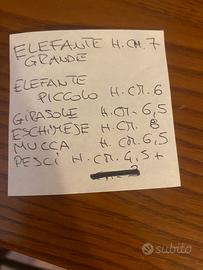 ELEFANTE H.CM 7
GRANDE
ELEFANTE
PICCOLO H.CM.6
GIRASOLE H.CM.6,5
ESCHIMESE H.CM. 8
MUCCA H.CM.6,5
PESCI H.CM.4,5+
subito